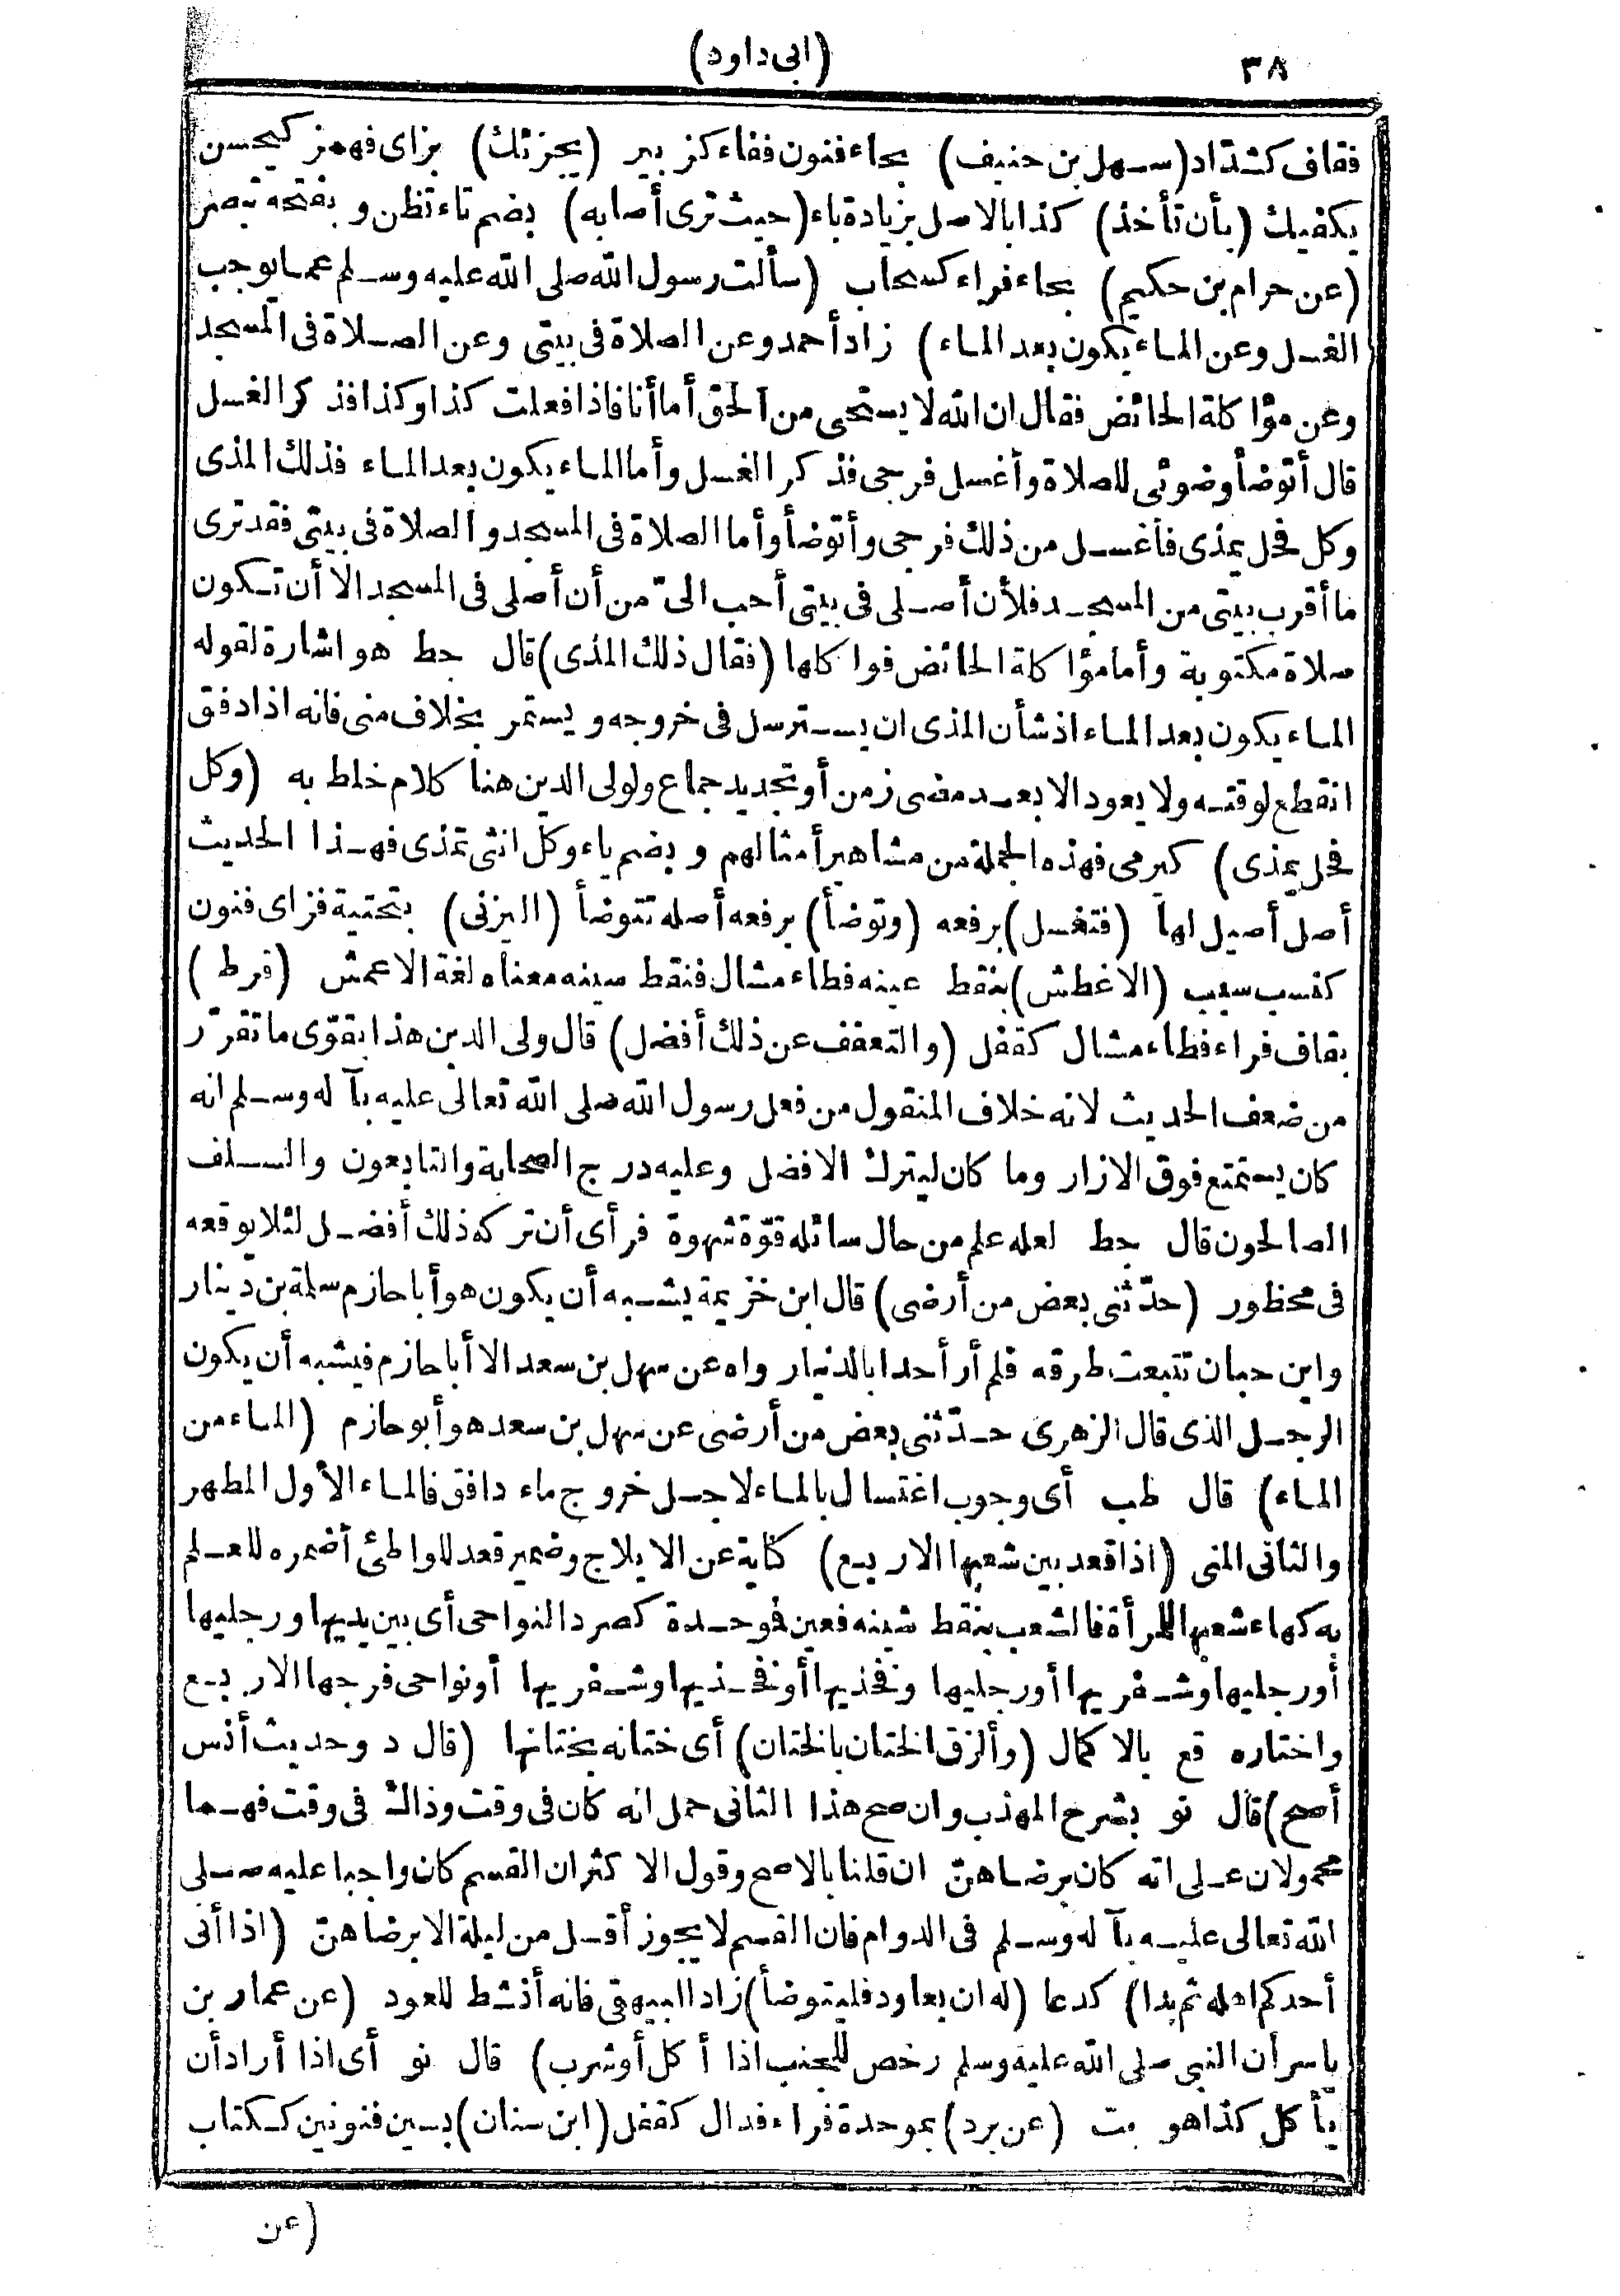 ٣٨
(ابى داود)
فقاف كشدّاد (سهل بن حنيف) بحاء فنون ففاء كزبير (يجزئك) بزاى فهمز كيحسن
يكفيك (بأن تأخذ) كذا بالاصل بزيادة باء (حيث ترى أصابه) بضم تاء تظن وبفتحه تبصر
(عن حرام بن حكيم) بحاء فراء كسحاب (سألت رسول الله صلى الله عليه وسلم عما يوجب
الغسل وعن الماء يكون بعد الماء) زاد أحمد وعن الصلاة فى بيتى وعن الصلاة فى المسجد
وعن مؤاكلة الحائض فقال ان الله لا يستحى من الحق أما أنا فاذا فعلت كذا وكذا فذكر الغسل
قال أتوضأ وضوئى للصلاة وأغسل فرجى فذكر الغسل وأما الماء يكون بعد الماء فذلك المذى
وكل فحل يمذى فأغسل من ذلك فرجى وأتوضأ وأما الصلاة فى المسجد والصلاة فى بيتى فقد ترى
ما أقرب بيتى من المسجد فلأن أصلى فى بيتى أحب الىّ من أن أصلى فى المسجد الا أن تكون
صلاة مكتوبة وأما مؤاكلة الحائض فواكلها (فقال ذلك المذى) قال حط هو اشارة لقوله
الماء يكون بعد الماء اذ شأن المذى ان يسترسل فى خروجه ويستمر بخلاف منى فانه اذا دفق
انقطع لوقته ولا يعود الا بعد مضى زمن أو تجديد جماع ولولى الدين هنا كلام خلط به (وكل
فحل يمذى) كيرمى فهذه الجملة من مشاهير أمثالهم وبضم ياء وكل انثى تمذى فهذا الحديث
أصل أصيل لها (فتغسل) برفعه (وتوضأ) برفعه أصله تتوضأ (اليزنى) بتحتية فزاى فنون
كنسب سبب (الاغطش) بنقط عينه فطاء مشال فنقط سينه معناه لغة الاعمش (قرط)
بقاف فراء فطاء مشال كقفل (والتعفف عن ذلك أفضل) قال ولى الدين هذا يقوّى ما تقرّر
من ضعف الحديث لانه خلاف المنقول من فعل رسول الله صلى الله تعالى عليه بآله وسلم انه
كان يستمتع فوق الازار وما كان ليترك الافضل وعليه درج الصحابة والتابعون والسلف
الصالحون قال حط لعله علم من حال سائله قوّة شهوة فرأى أن تركه ذلك أفضل لئلا يوقعه
فى محظور (حدّثنى بعض من أرضى) قال ابن خزيمة يشبه أن يكون هو أبا حازم سلمة بن دينار
وابن حبان تتبعت طرقه فلم أر أحدا بالدنيا رواه عن سهل بن سعد الا أبا حازم فيشبه أن يكون
الرجل الذى قال الزهرى حدّثنى بعض من أرضى عن سهل بن سعد هو أبو حازم (الماء من
الماء) قال طب أى وجوب اغتسال بالماء لاجل خروج ماء دافق فالماء الأول المطهر
والثانى المنى (اذا قعد بين شعبها الاربع) كناية عن الايلاج وضمير قعد للواطئ أضمره للعلم
به كهاء شعبها للمرأة فالشعب بنقط شينه فعين فوحدة كصرد النواحى أى بين يديها ورجليها
أو رجليها وشفريها أو رجليها وفخذيها أو فخذيها وشفريها أو نواحى فرجها الاربع
واختاره قع بالاكمال (وألزق الختان بالختان) أى ختانه بختانها (قال د وحديث أنس
أصح) قال نو بشرح المهذب وان صح هذا الثانى حمل انه كان فى وقت وذاك فى وقت فهما
محمولان على انه كان برضاهنّ ان قلنا بالاصح وقول الاكثر ان القسم كان واجبا عليه صلى
الله تعالى عليه بآله وسلم فى الدوام فان القسم لا يجوز أقل من ليلة الا برضاهنّ (اذا أتى
أحدكم اهله ثم بدا) كدعا (له ان يعاود فليتوضأ) زاد البيهقى فانه أنشط للعود (عن عمار بن
ياسر أن النبى صلى الله عليه وسلم رخص للجنب اذا أكل أو شرب) قال نو أى اذا أراد أن
يأكل كذا هو بت (عن برد) بموحدة فراء فدال كقفل (ابن سنان) بسين فنونين ككتاب
(عن